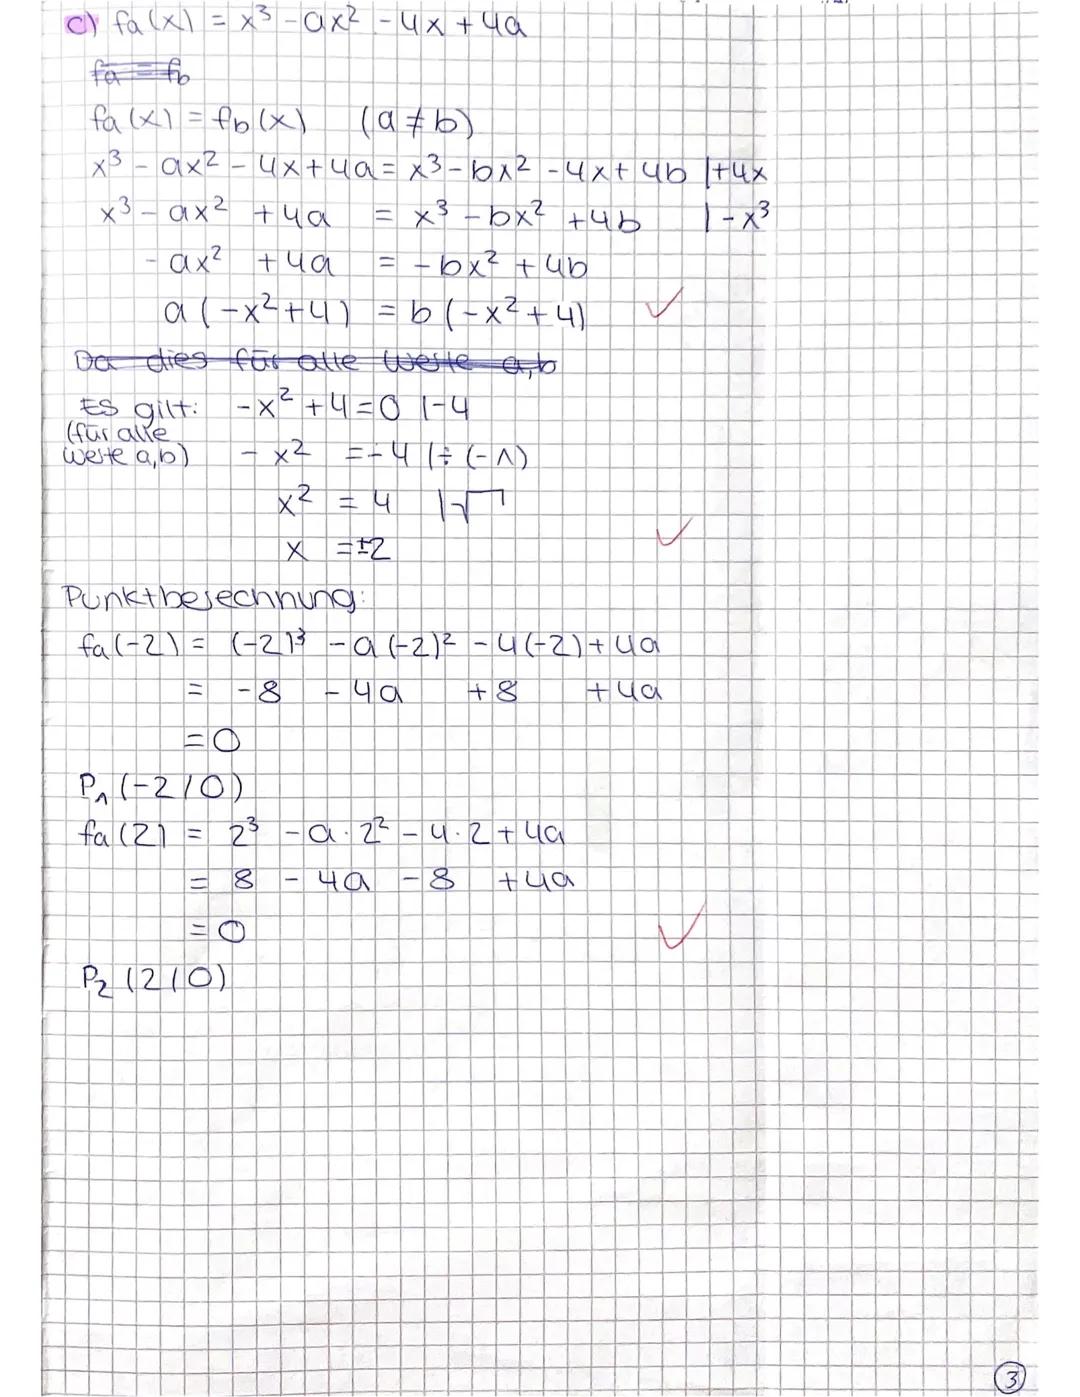 c) fa(x) = x³ - ax² - 4x + 4a
fa = fb
fa(x) = fb(x) (a ≠ b)
x³ - ax² - 4x + 4a = x³ - bx² - 4x + 4b |+4x
x³ - ax² + 4a = x³ - bx² + 4b |-x³
- ax² + 4a = - bx² + 4b
a(-x²+4) = b(-x²+4)
Da dies für alle Werte a,b
Es gilt: -x² + 4 = 0 |-4
(für alle
Werte a,b) - x² = -4 |÷ (-1)
x² = 4 |√
x = ±2
Punktberechnung:
fa(-2) = (-2)³ - a(-2)² - 4(-2) + 4a
= -8 - 4a + 8 + 4a
= 0
P₁(-2/0)
fa(2) = 2³ - a·2² - 4·2 + 4a
= 8 - 4a - 8 + 4a
= 0
P₂(2/0)
3